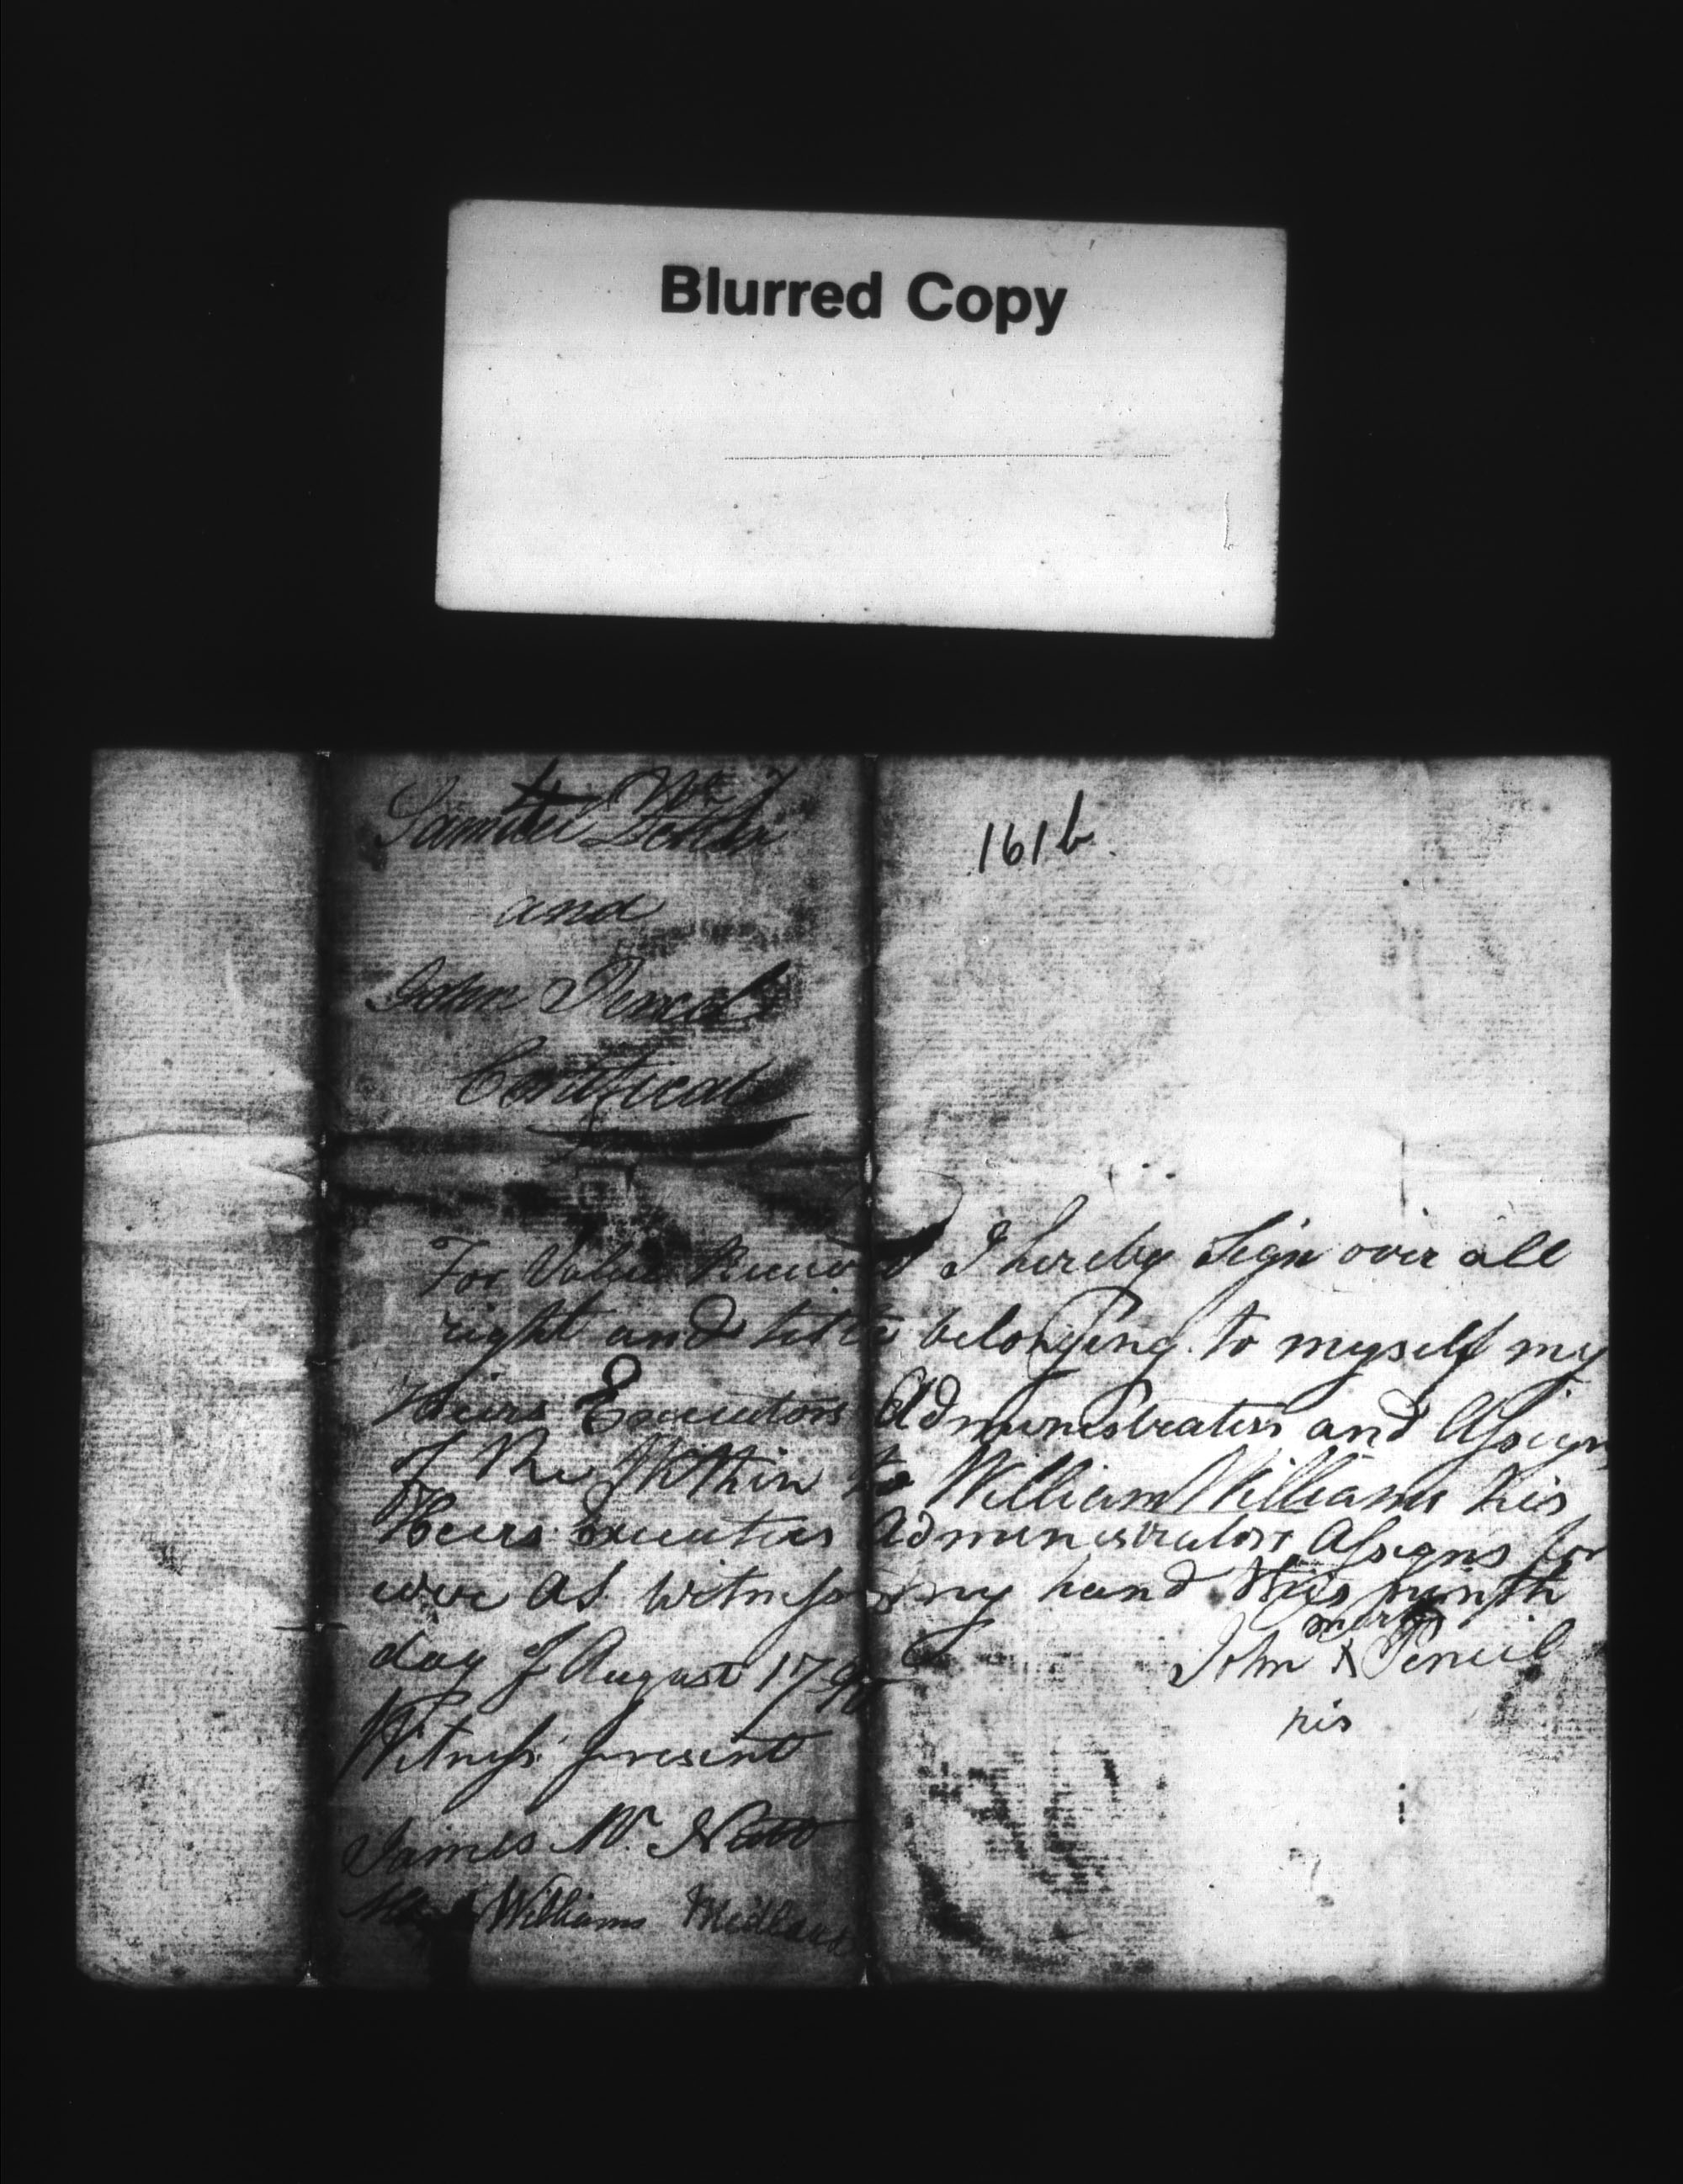 Blurred Copy
161b
Samuel
and
John Pencil
Certificate
For Value Receivd I hereby Sign over all
right and title belonging to myself my
Heirs Executors Administrators and Assigns
of the Within to William Williams his
Heirs Executors Administrators Assigns for
ever as Witness my hand this
day of August 179
mark
John X Pencil
his
Witness present
James Mc Natt
Williams